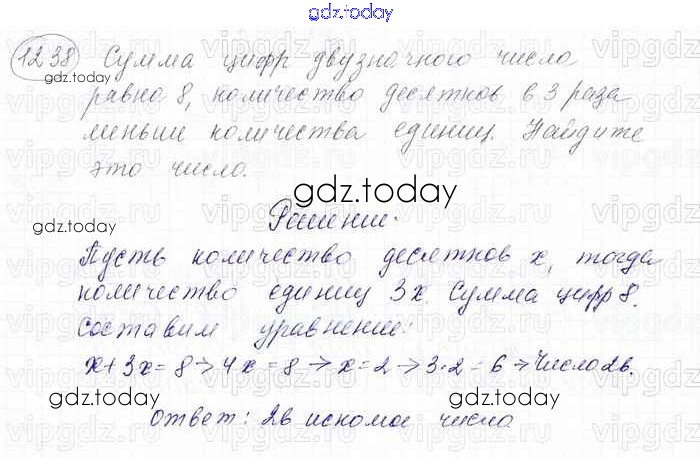 gdz.today
1238 Сумма цифр двузначного числа
gdz.today
равна 8, количество десятков в 3 раза
меньше количества единиц. Найдите
это число.
gdz.today
gdz.today
Решение:
Пусть количество десятков x, тогда
количество единиц 3x. Сумма цифр 8.
Составим уравнение:
x+3x=8→4x=8→x=2→3·2=6→Число 26.
gdz.today
Ответ: 26 искомое число
gdz.today